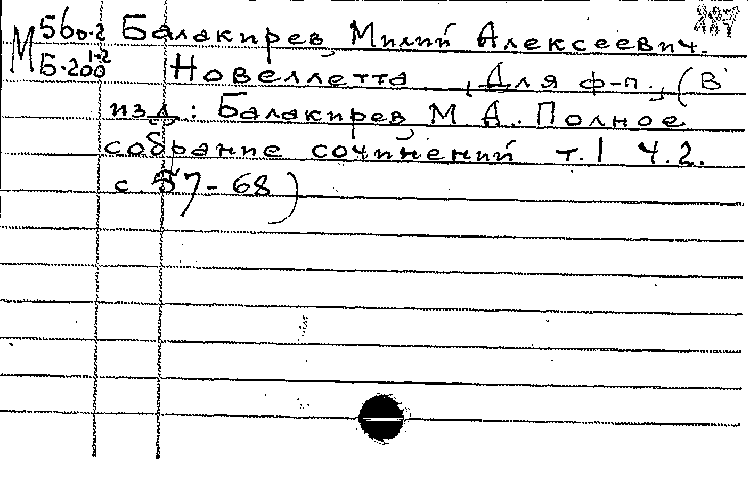 М 560-2 Балакирев, Милий Алексеевич.
Б-200 1-2 Новеллетта. Для ф-п. (В
изд: Балакирев, М А. Полное
собрание сочинений т.1 ч.2.
с 57-68)